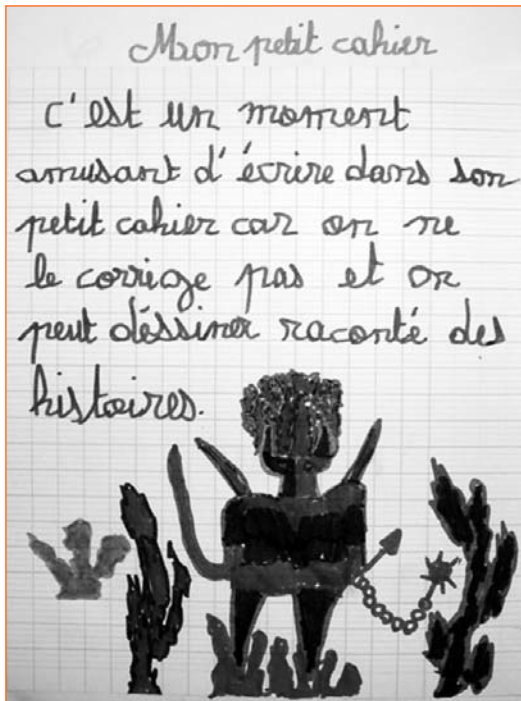 Mon petit cahier
C'est un moment
amusant d'écrire dans son
petit cahier car on ne
le corrige pas et on
peut déssiner raconté des
histoires.